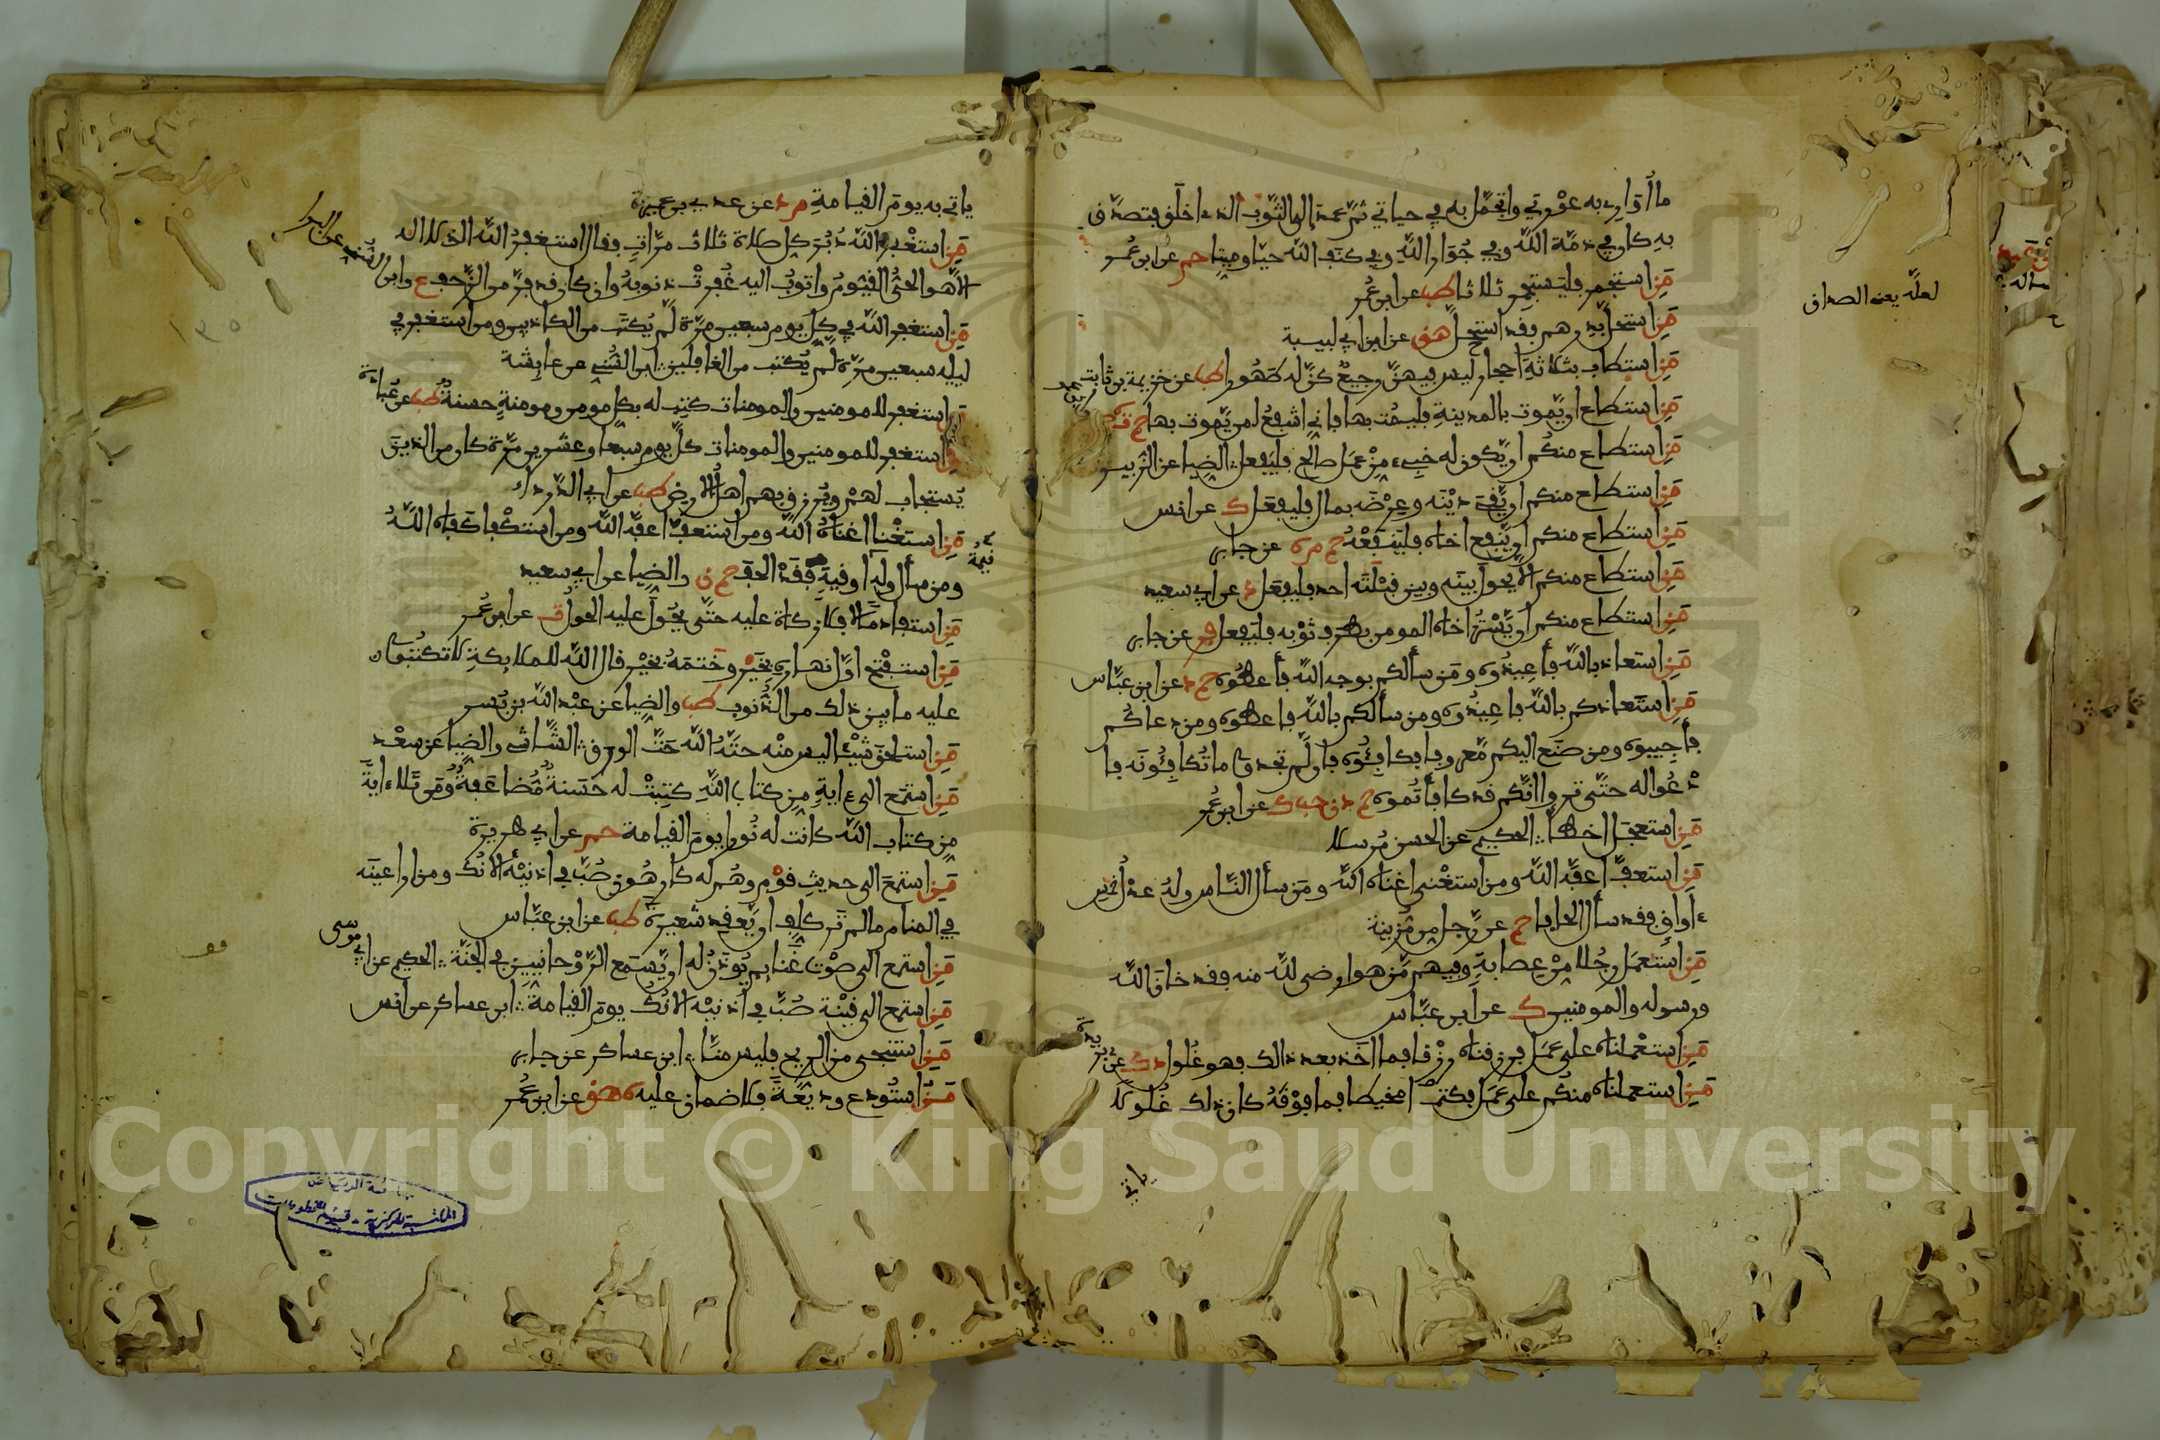 ما أوارى به عورتي واتجمل به في حياتي ثم عمد إلى الثوب الذى اخلق فتصدق
به كان في ذمة الله وفي جوار الله وفي كنف الله حيا وميتا حم عن ابن عمر
من استجمر فليستجمر ثلاثا طب عن ابن عمر
من استحل بدرهم فقد استحل هق عن ابن ابي لبيبة
من استطاب بثلاثة احجار ليس فيهن رجيع كن له طهورا طب عن خزيمة بن ثابت
من استطاع ان يموت بالمدينة فليمت بها فاني اشفع لمن يموت بها حم ت
من استطاع منكم ان يكون له خبء من عمل صالح فليفعل الضيا عن الزبير
من استطاع منكم ان يقي دينه وعرضه بماله فليفعل ك عن انس
من استطاع منكم ان ينفع اخاه فلينفعه حم م ه عن جابر
من استطاع منكم الا يحول بينه وبين قبلته احد فليفعل د عن ابي سعيد
من استطاع منكم ان يستر اخاه المومن بطرف ثوبه فليفعل فر عن جابر
من استعاذ بالله فأعيذوه ومن سألكم بوجه الله فأعطوه حم د عن ابن عباس
من استعاذكم بالله فاعيذوه ومن سألكم بالله فاعطوه ومن دعاكم
فأجيبوه ومن صنع اليكم معروفا فكافئوه فان لم تجدوا ما تكافئونه فا
دعوا له حتى تروا انكم قد كافأتموه حم د ن حب ك عن ابن عمر
من استعجل اخطأ الحكيم عن الحسن مرسلا
من استعف اعفه الله ومن استغنى اغناه الله ومن سأل الناس وله عدل خمس
اواق فقد سأل الحافا حم عن رجل من مزينة
من استعمل رجلا من عصابة وفيهم من هو ارضى لله منه فقد خان الله
ورسوله والمومنين ك عن ابن عباس
من استعملناه على عمل فرزقناه رزقا فما اخذ بعد ذالك فهو غلول د ك عن بريدة
من استعملناه منكم على عمل فكتمنا مخيطا فما فوقه كان ذلك غلولا
ياتي
لعله يعني الصداق
ياتي به يوم القيامة م د عن عدي بن عميرة
من استغفر الله دبر كل صلاة ثلاث مرات فقال استغفر الله الذي لا اله
الا هو الحي القيوم واتوب اليه غفرت ذنوبه وان كان قد فر من الزحف ع وابن السني عن البراء
من استغفر الله في كل يوم سبعين مرة لم يكتب من الكاذبين ومن استغفر في
ليله سبعين مرة لم يكتب من الغافلين ابن السني عن عايشة
من استغفر للمومنين والمومنات كتب له بكل مومن ومومنة حسنة طب عن عبادة
من استغفر للمومنين والمومنات كل يوم سبعا وعشرين مرة كان من الذين
يستجاب لهم ويرزق بهم اهل الارض طب عن ابي الدرداء
من استغنا اغناه الله ومن استعف اعفه الله ومن استكفا كفاه الله
ومن سأل وله قيمة اوقية فقد الحف حم ن والضيا عن ابي سعيد
من استفاد مالا فلا زكاة عليه حتى يحول عليه الحول ت عن ابن عمر
من استفتح اول نهاره بخير وختمه بخير قال الله للملايكة لا تكتبوا
عليه ما بين ذلك من الذنوب طب والضيا عن عبد الله بن بسر
من استلحق شيئا ليس منه حته الله حت الورق الشاشي والضيا عن سعد
من استمع الى ءاية من كتاب الله كتبت له حسنة مضاعفة ومن تلا ءاية
من كتاب الله كانت له نورا يوم القيامة حم عن ابي هريرة
من استمع الى حديث قوم وهم له كارهون صب في اذنيه الانك ومن ارا عينه
في المنام ما لم تر كلف ان يعقد شعيرة طب عن ابن عباس
من استمع الى صوت غناء لم يوذن له ان يستمع الروحانيين في الجنة الحكيم عن ابي موسى
من استمع الى قينة صب في أذنيه الانك يوم القيامة ابن عساكر عن انس
من استنجى من الريح فليس منا ابن عساكر عن جابر
من استودع وديعة فلا ضمان عليه ه هق عن ابن عمر
جامعة الرياض
المكتبة المركزية - قسم المخطوطات
Copyright © King Saud University